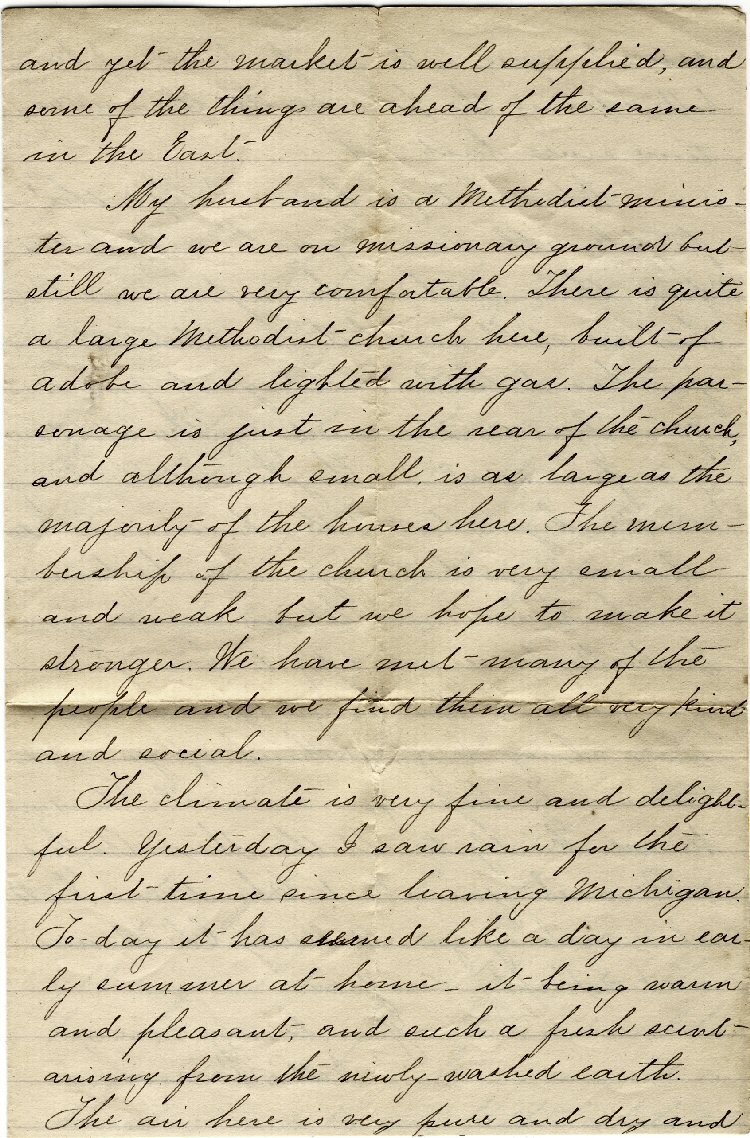 and yet the market is well supplied, and
some of the things are ahead of the same
in the East.
My husband is a Methodist minis-
ter and we are on missionary ground but
still we are very comfortable. There is quite
a large Methodist church here, built of
adobe and lighted with gas. The par-
sonage is just in the rear of the church,
and although small, is as large as the
majority of the houses here. The mem-
bership of the church is very small
and weak but we hope to make it
stronger. We have met many of the
people and we find them all very kind
and social.
The climate is very fine and delight-
ful. Yesterday I saw rain for the
first time since leaving Michigan.
To-day it has seemed like a day in ear-
ly summer at home - it being warm
and pleasant, and such a fresh scent
arising from the newly-washed earth.
The air here is very pure and dry and